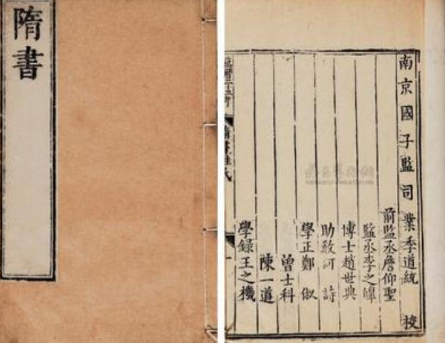 隋書
南京國子監司業季道統 校
前監丞詹仰聖
監丞李之皥
博士趙世典
助敎河詩
學正鄭俶
曾士科
陳一道
學録王之機